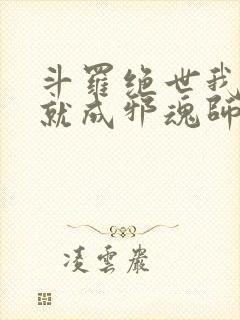 斗羅绝世我
就成邪魂師
凌雲巖